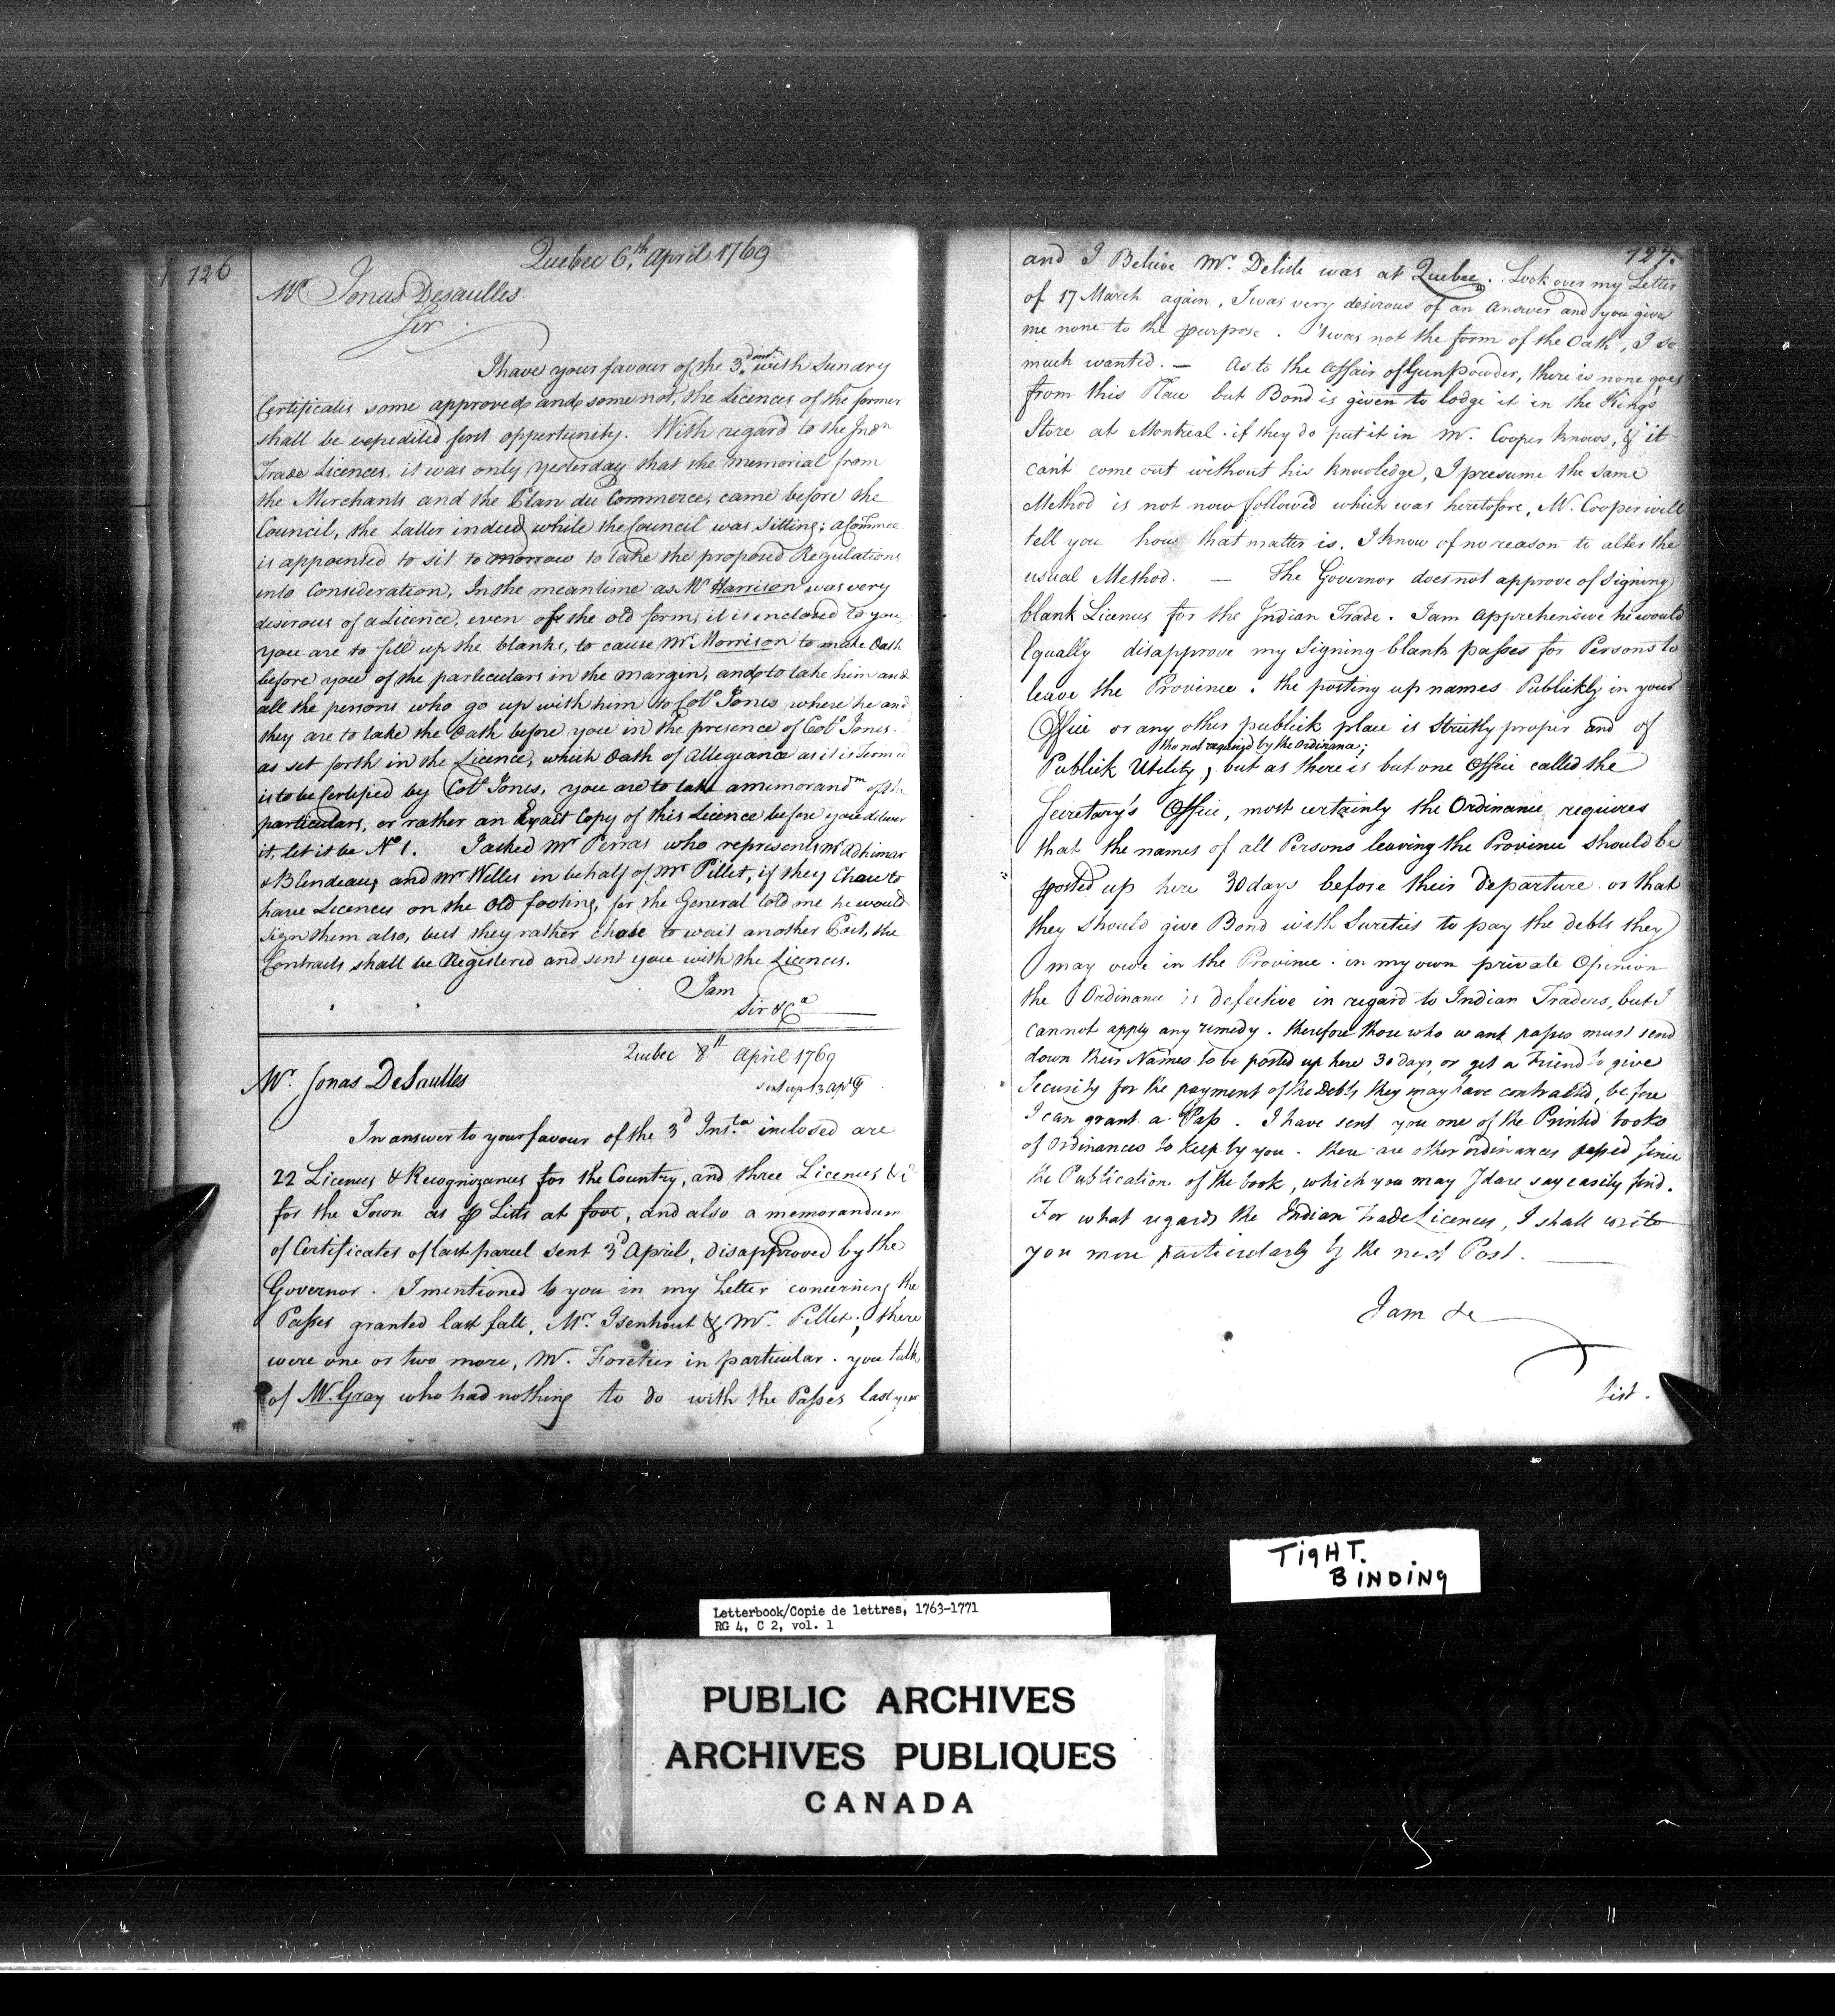 126
Quebec 6th April 1769
Mr Jonas Desaulles
Sir
I have your favour of the 3d inst. with Sundry
Certificates some approved and some not, the Licences of the former
shall be expedited first oppertunity. With regard to the Indn
Trade Licences, it was only yesterday that the memorial from
the Merchants and the Plan du Commerce, came before the
Council, the Latter indeed while the Council was sitting; a Commee
is appointed to sit to morrow to take the proposed Regulations
into Consideration, In the meantime as Mr Harrison was very
desirous of a Licence, even of the old form, it is inclosed to you,
you are to fill up the blanks, to cause Mr Morrison to make Oath
before you of the particulars in the margin, and to take him and
all the persons who go up with him to Colo Jones where he and
they are to take the Oath before you in the presence of Colo Jones
as set forth in the Licence, which Oath of Allegiance as it is
is to be Certifyed by Colo Jones, you are to take a memorandm of the
particulars, or rather an Exact Copy of this Licence before you deliver
it, let it be No 1. I asked Mr Perras who represents Mr Adhimar
& Blondeau, and Mr Welles in behalf of Mr Pillet, if they Chose to
have Licences on the old footing, for the General told me he would
sign them also, but they rather chose to wait another Post, the
Contracts shall be Registered and sent you with the Licences.
I am
Sir &Ca
Quebec 8th April 1769
sent up 13 Apl
Mr. Jonas DeSaulles
In answer to your favour of the 3d Inst. inclosed are
22 Licences & Recognizances for the Country, and three Licences &c
for the Town as P Lists at foot, and also a memorandum
of Certificates of last parcel sent 3d April, disapproved by the
Governor. I mentioned to you in my Letter concerning the
Passes granted last fall, Mr. Isenhout & Mr. Pillet, there
were one or two more, Mr. Foretier in particular. you talk
of Mr. Gray who had nothing to do with the Passes last year
127.
and I Believe Mr. Delisle was at Quebec. Look over my Letter
of 17 March again, I was very desirous of an Answer and you give
me none to the purpose. 'twas not the form of the Oath, I so
much wanted. — As to the affair of Gunpowder, there is none goes
from this Place but Bond is given to lodge it in the King's
Store at Montreal. if they do put it in Mr. Cooper knows, & it
can't come out without his knowledge, I presume the same
Method is not now followed which was heretofore, Mr. Cooper will
tell you how that matter is. I know of no reason to alter the
usual Method. — The Governor does not approve of signing
blank Licences for the Indian Trade. I am apprehensive he would
Equally disapprove my Signing blank passes for Persons to
leave the Province. the posting up names Publickly in your
Office or any other publick place is strictly proper and of
tho not required by the Ordinance;
Publick Utility, but as there is but one Office called the
Secretary's Office, most certainly the Ordinance requires
that the names of all Persons leaving the Province should be
posted up here 30 days before their departure or that
they should give Bond with Sureties to pay the debts they
may owe in the Province. in my own private Opinion
the Ordinance is defective in regard to Indian Traders, but I
cannot apply any remedy. therefore those who want passes must send
down their Names to be posted up here 30 days or get a Friend to give
Security for the payment of the Debts they may have contracted, before
I can grant a Pass. I have sent you one of the Printed books
of Ordinances to keep by you. there are other ordinances passed since
the Publication of the book, which you may I dare say easily find.
For what regards the Indian Trade Licences, I shall write
you more particularly by the next Post.
I am &c
List.
TIGHT.
BINDING
Letterbook/Copie de lettres, 1763-1771
RG 4, C 2, vol. 1
PUBLIC ARCHIVES
ARCHIVES PUBLIQUES
CANADA